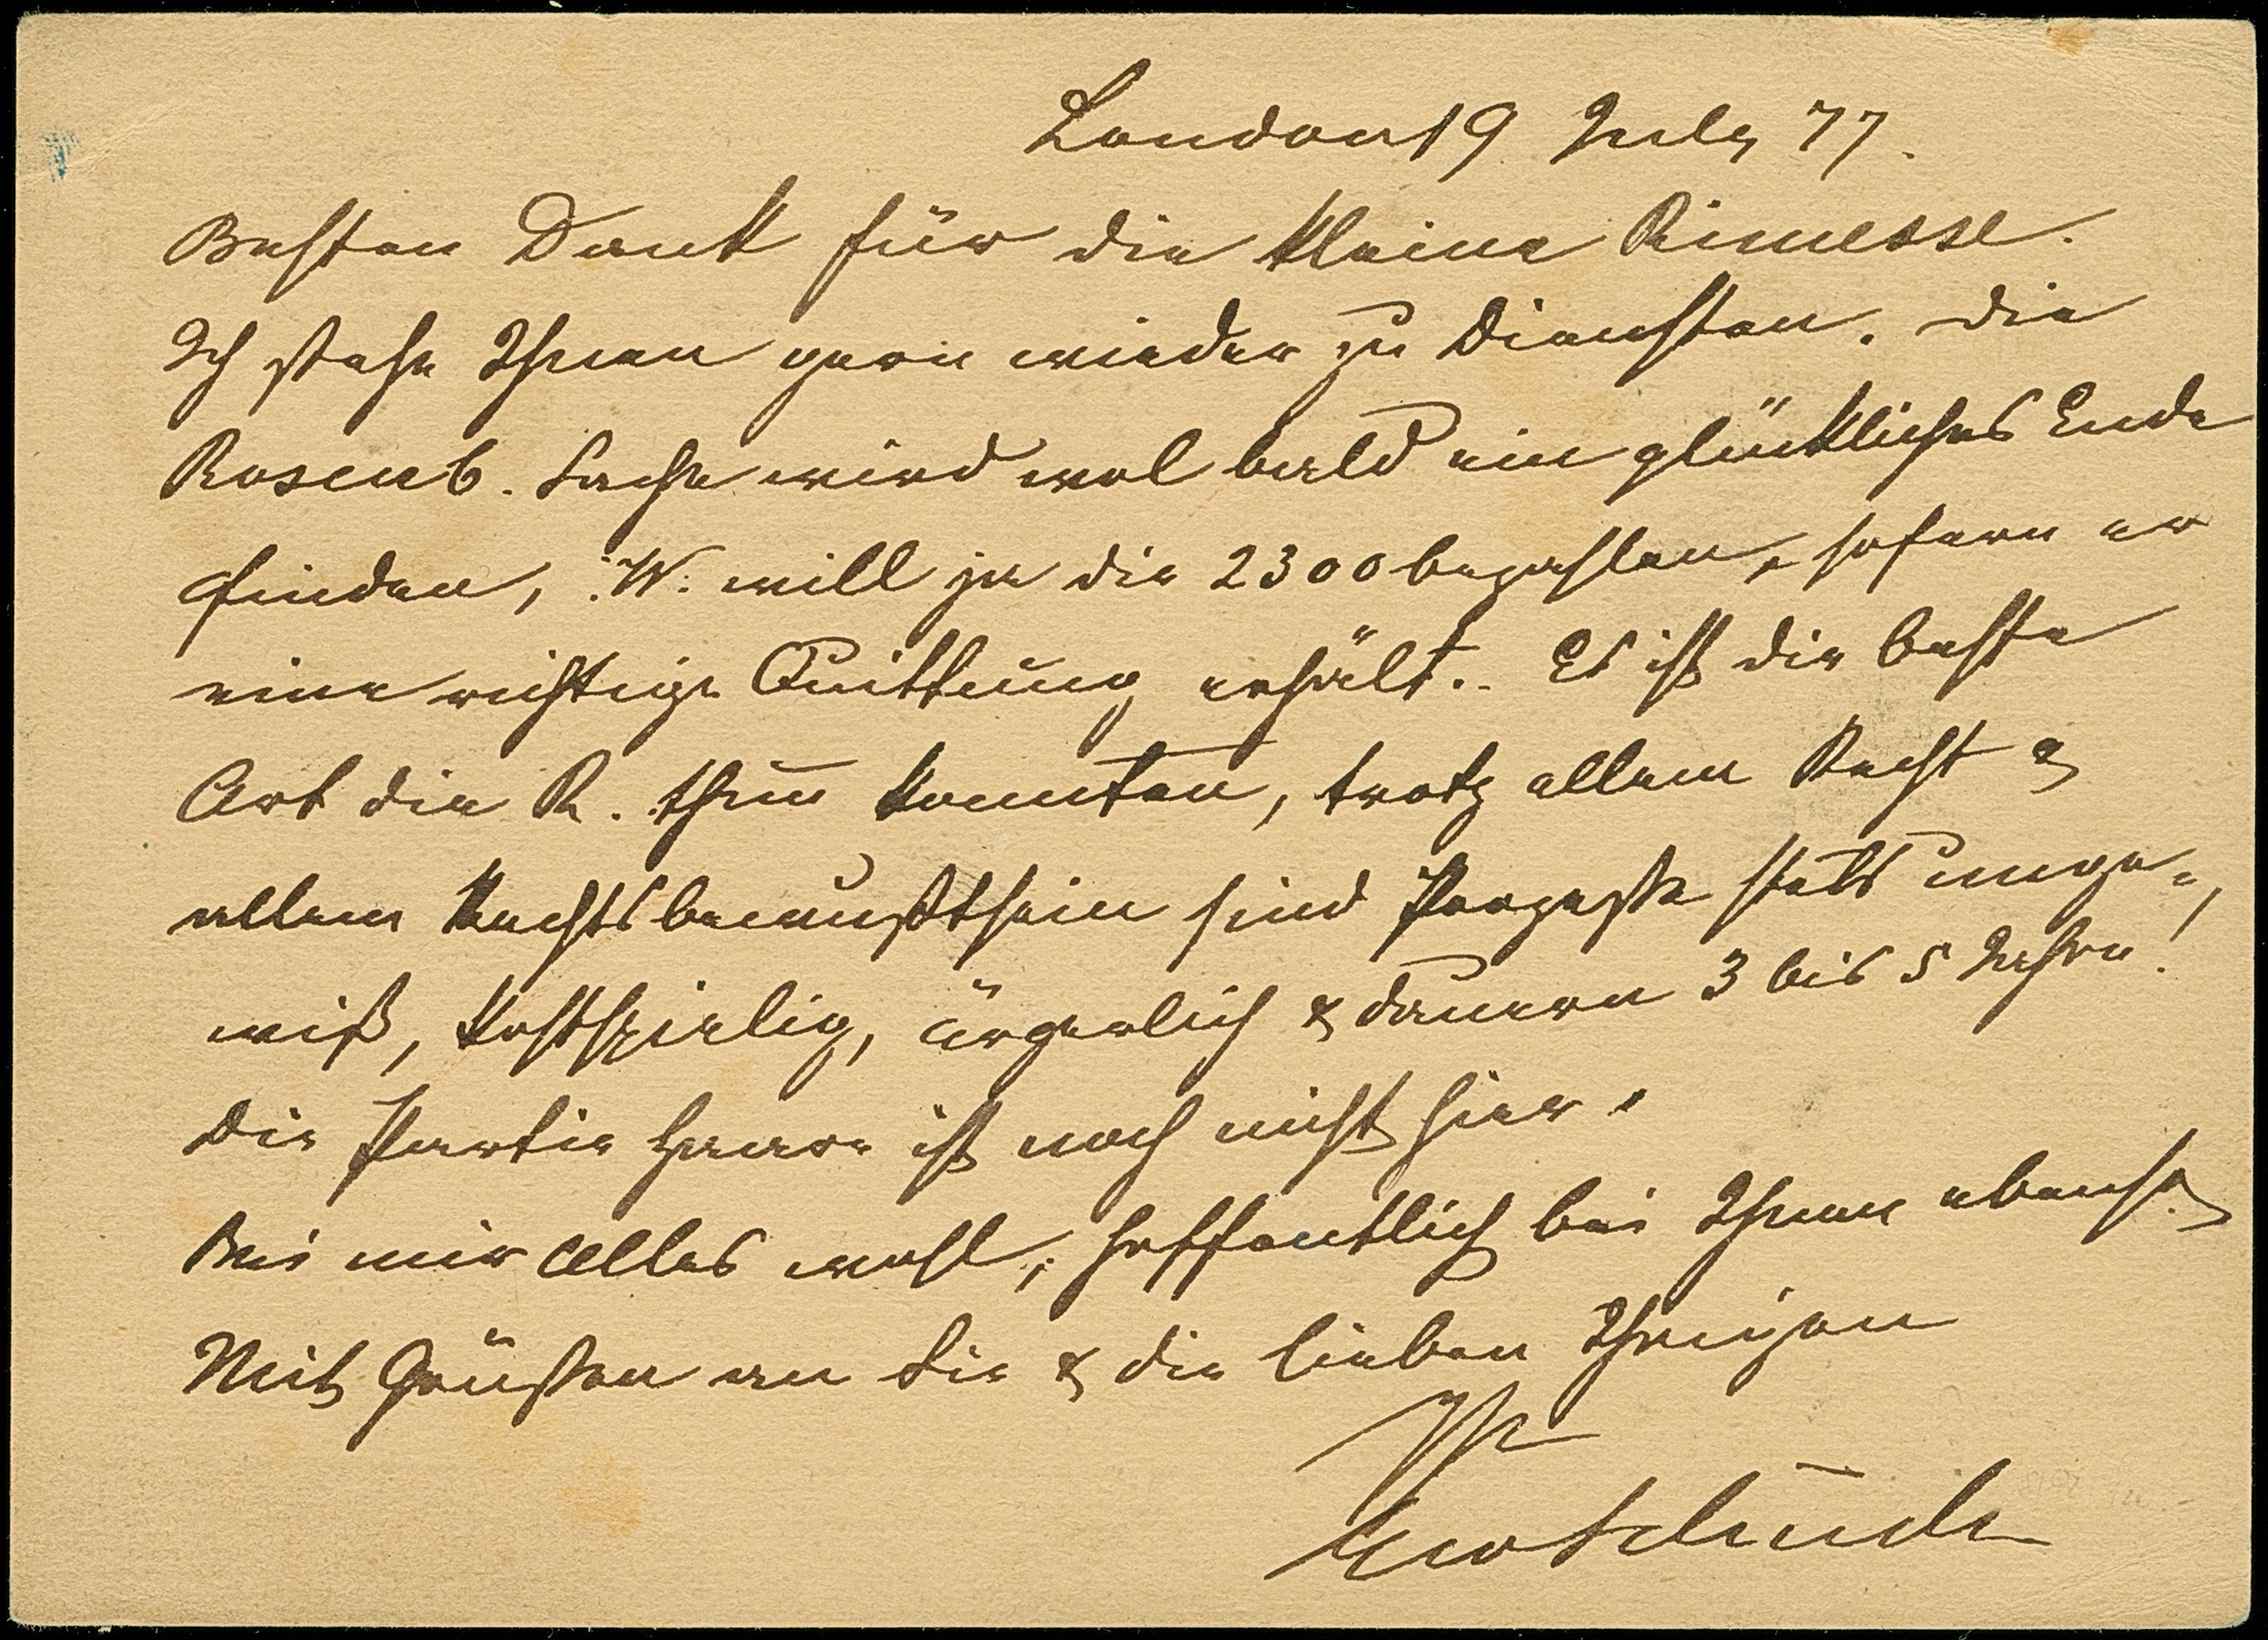 London 19 July 77.
Besten Dank für die kleine Rimesse.
Ich stehe Ihnen gern wieder zu Diensten. Die
Rosenb. Sache wird wol bald ein glückliches Ende
finden, W. will ja die 2300 bezahlen, sofern er
eine richtige Quittung erhält. Es ist die beste
Art die R. thun konnten, trotz allem Recht &
allem Rechtsbewußtsein sind Prozesse stets unge-
wiß, kostspielig, ärgerlich & dauern 3 bis 5 Jahre!
Die Partie ist noch nicht hier.
Bei mir Alles wohl, hoffentlich bei Ihnen ebenso.
Mit Grüßen an Sie & die lieben Ihrigen
Ihr